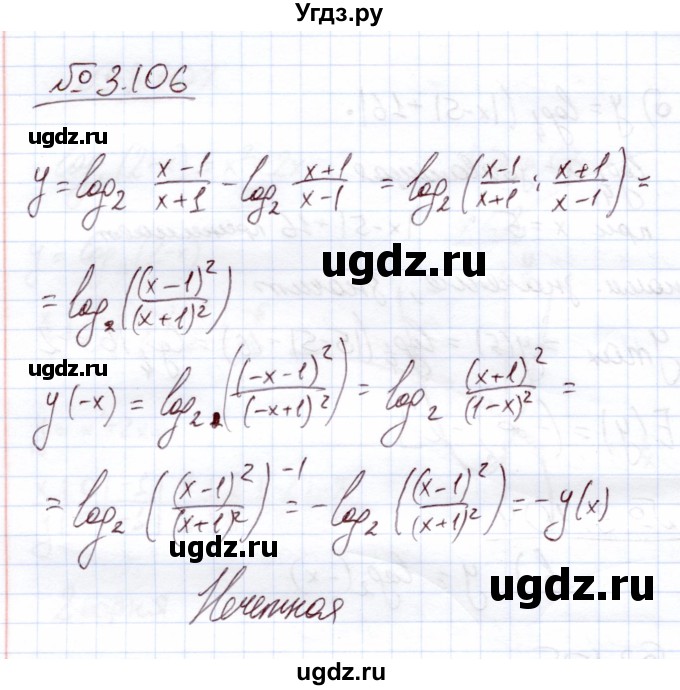 Угдз.ру
№ 3.106
ugdz.ru
y = log₂ (x-1)/(x+1) - log₂ (x+1)/(x-1) = log₂((x-1)/(x+1) : (x+1)/(x-1)) =
ugdz.ru
= log₂((x-1)²/(x+1)²)
ugdz.ru
y(-x) = log₂((-x-1)²/(-x+1)²) = log₂ (x+1)²/(1-x)² =
= log₂((x-1)²/(x+1)²)⁻¹ = -log₂((x-1)²/(x+1)²) = -y(x)
ugdz.ru
ugdz.ru
Нечетная
ugdz.ru